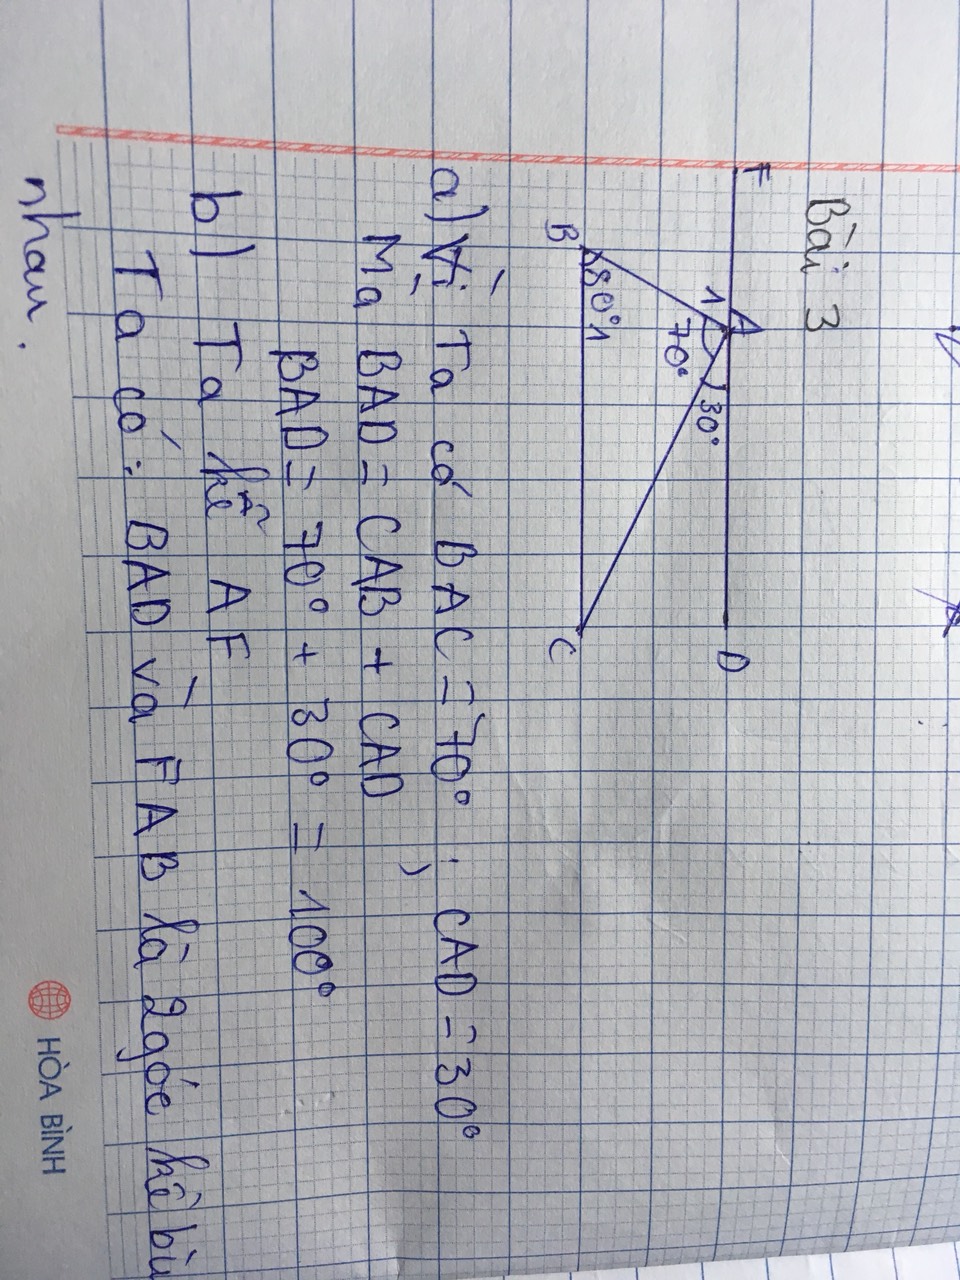 Bài 3
F
A
D
1
30°
70°
B
80° 1
C
a) Vì Ta có BAC = 70° ; CAD = 30°
Mà BAD = CAB + CAD
BAD = 70° + 30° = 100°
b) Ta kẻ AF
Ta có: BAD và FAB là 2 góc kề bù
nhau.
HÒA BÌNH